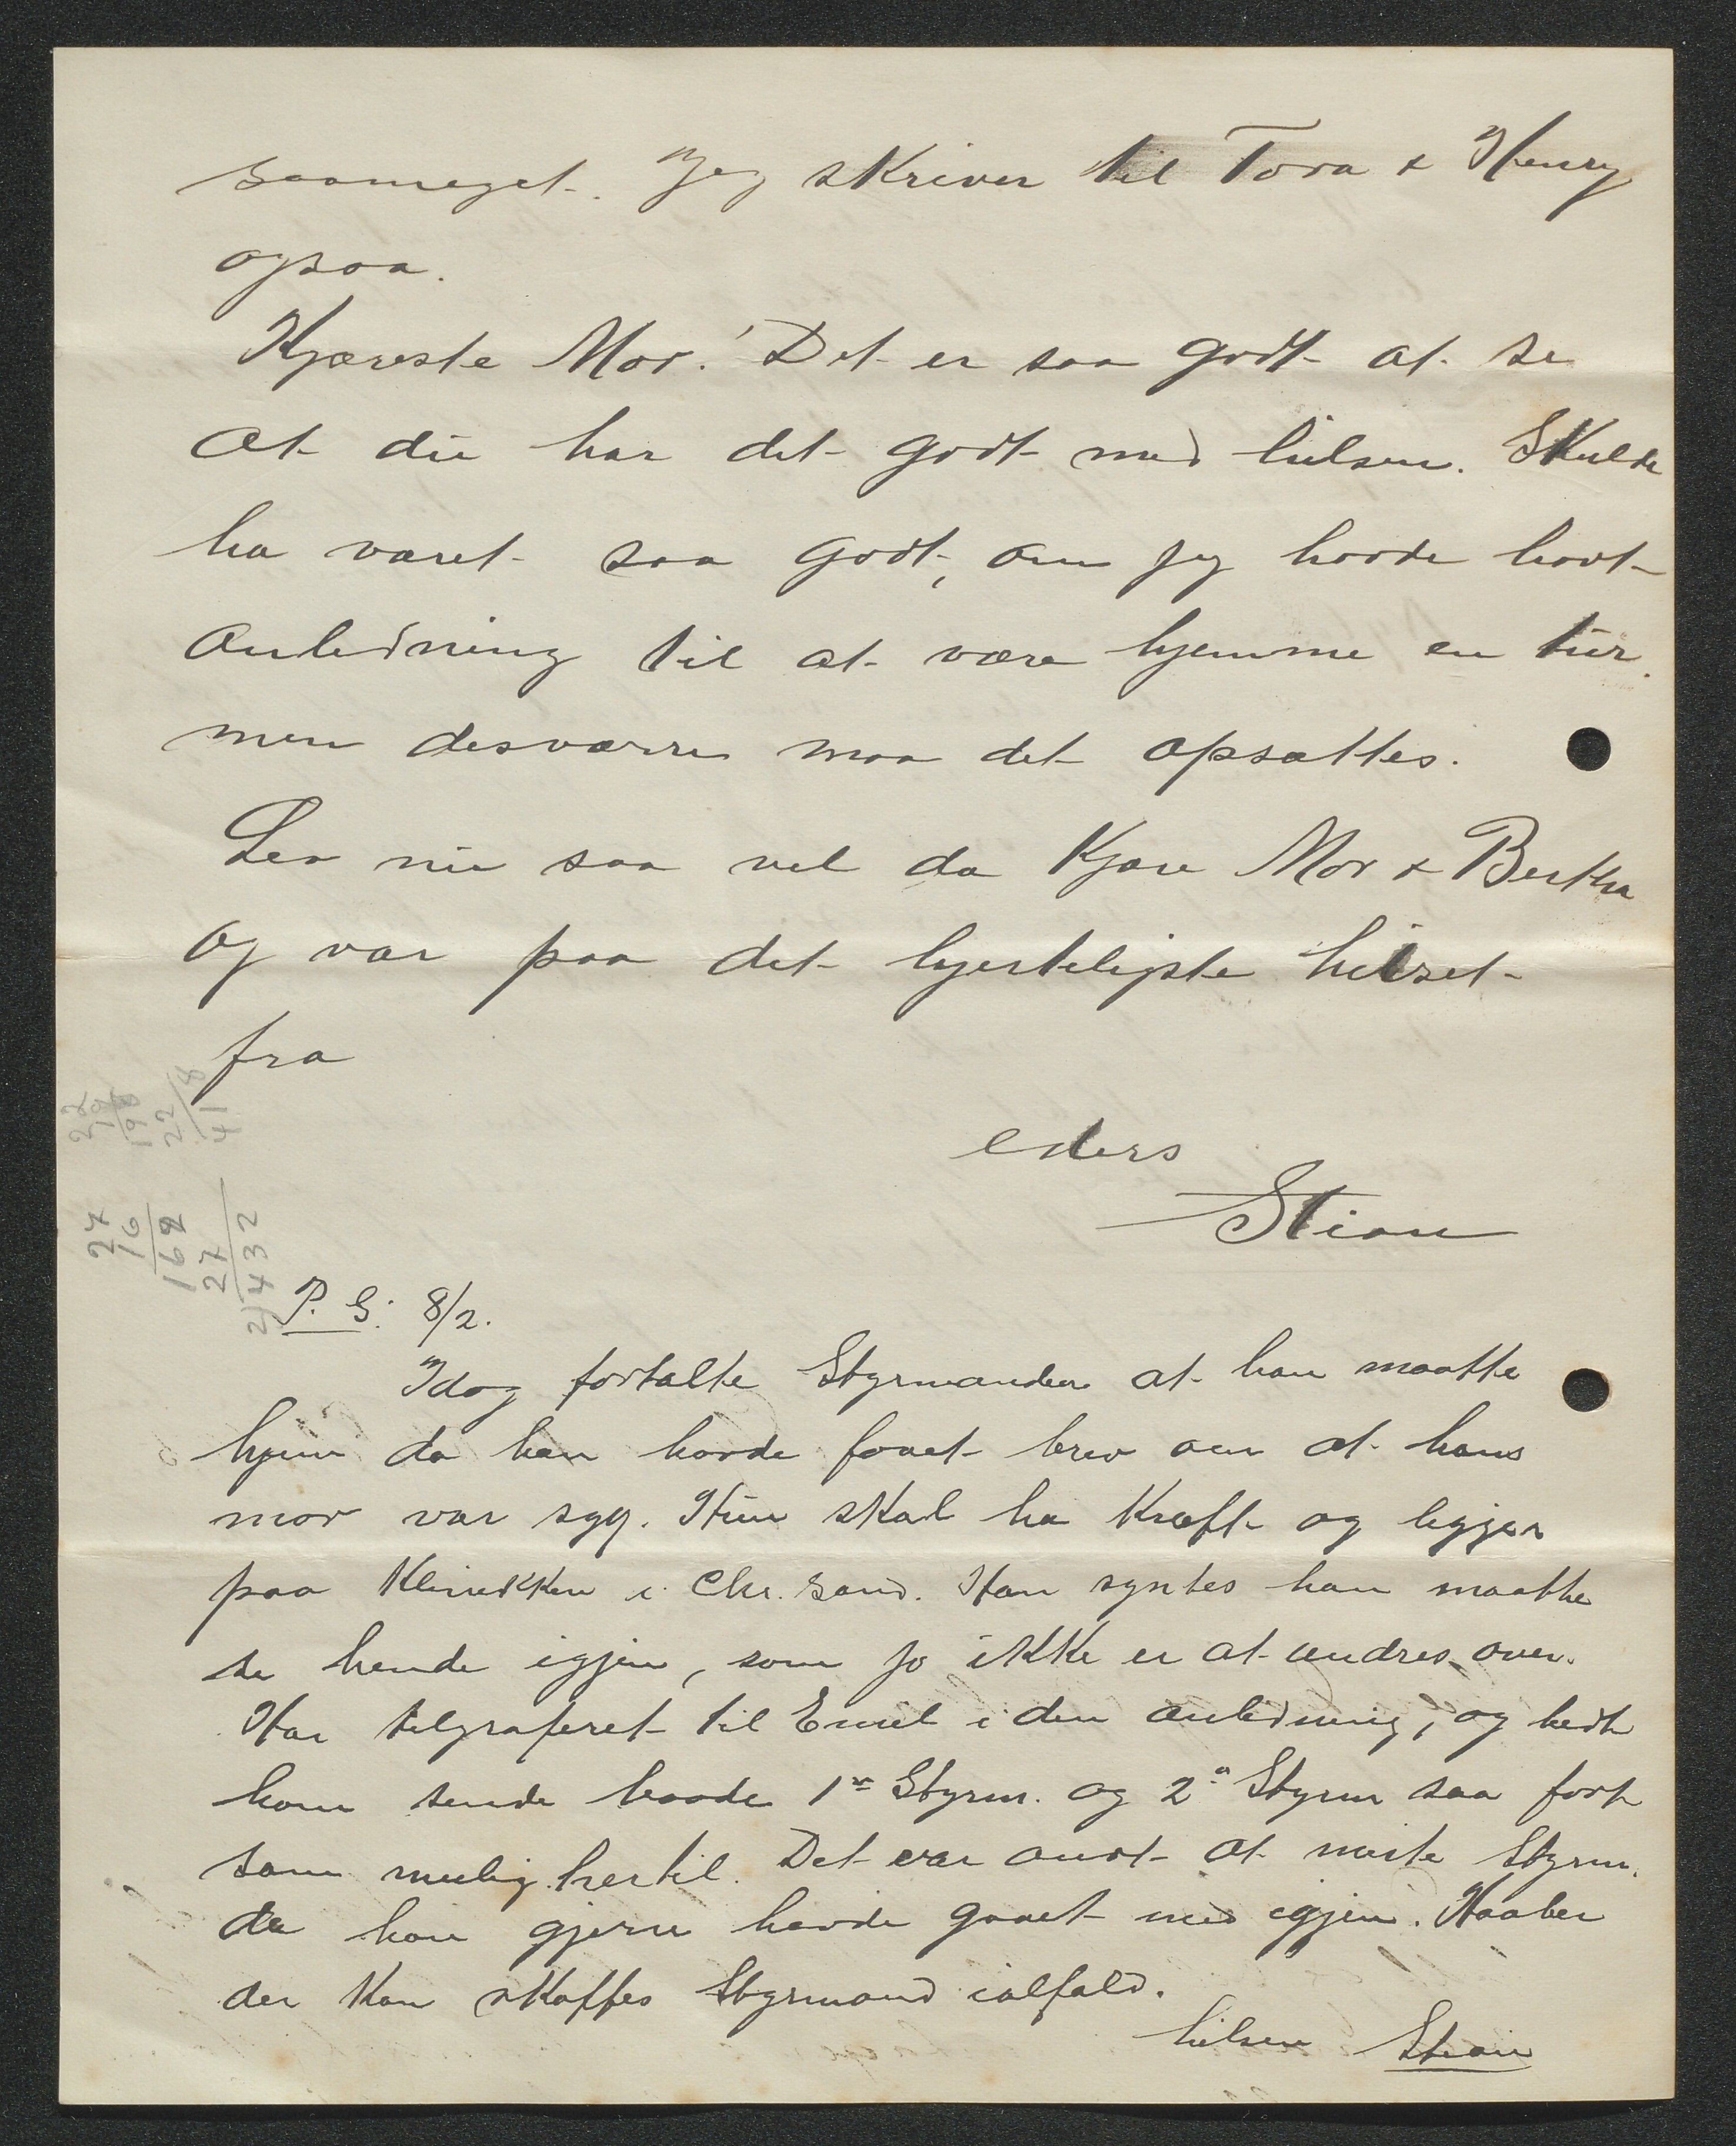 saameget. Jeg skriver til Tora & Henry
ogsaa.
Kjæreste Mor! Det er saa godt at se
at du har det godt med hilsen. Skulde
ha været saa godt, om jeg havde havt
anledning til at være hjemme en tur.
men desværre maa det opsættes.
Lev nu saa vel da Kjære Mor & Bertha
og vær paa det hjerteligste hilset
fra
eders
Stian
22
19
198
22
418
27
16
162
27
432
P. S. 8/2.
Idag fortalte Styrmanden at han maatte
hjem da han havde faaet brev om at hans
mor var syg. Hun skal ha Kræft og ligger
paa Klinikken i Chr.sand. Han syntes han maatte
se hende igjen, som jo ikke er at undres over.
Har telgraferet til Emil i den anledning, og bedt
ham sende baade 1ste Styrm. og 2den Styrm saa fort
som mulig hertil. Det var ondt at miste Styrm.
da han gjerne havde gaaet med igjen. Haaber
der kan skaffes Styrmand ialfald.
hilsen Stian